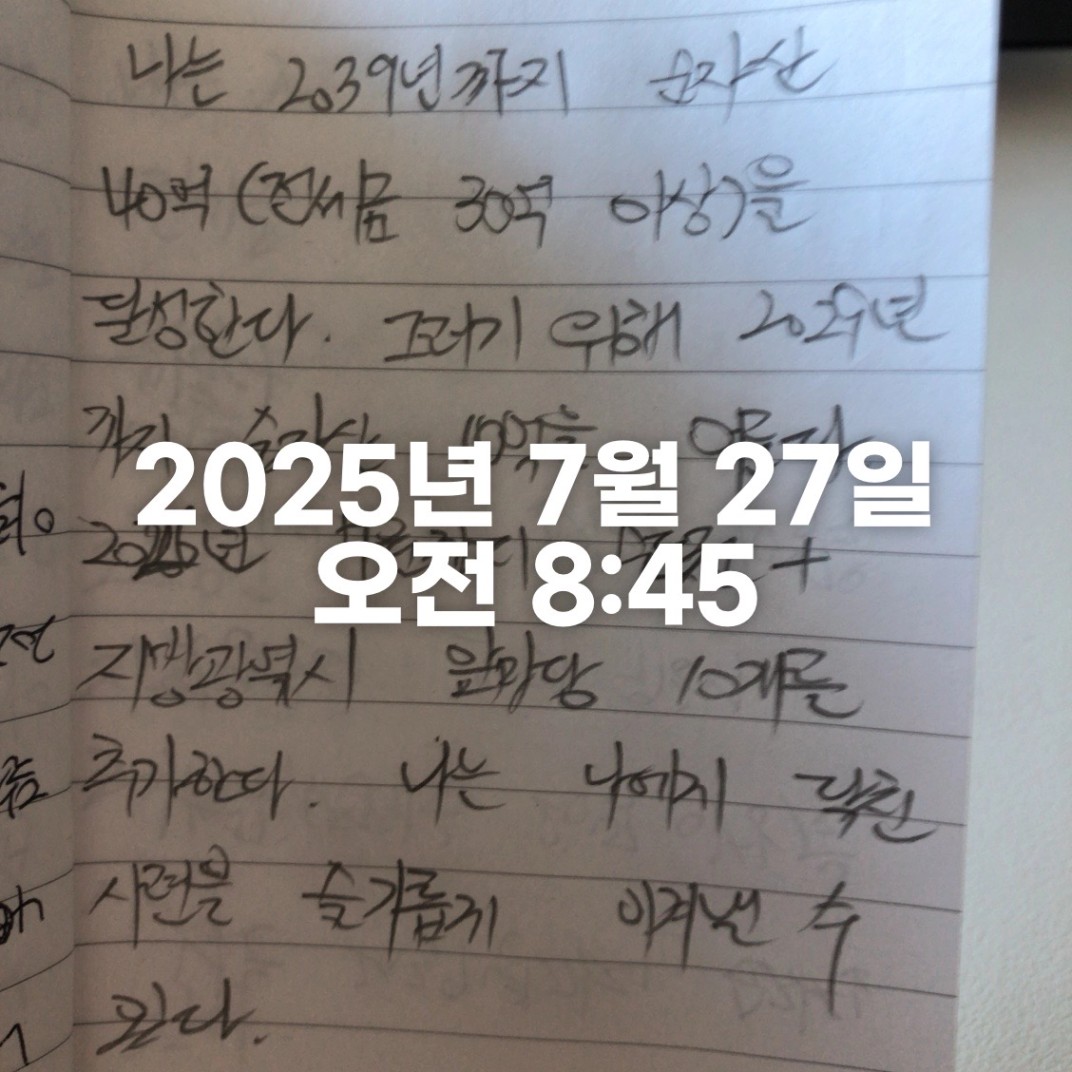 나는 2039년까지 순자산
40억 (전세금 30억 이상)을
달성한다. 그러기 위해 2029년
까지 순자산 10억을
2025년 7월 27일
오전 8:45
2025년 +
지방광역시 앞마당 10개를
추가한다. 나는 나에게 닥친
시련을 슬기롭게 이겨낼 수
있다.